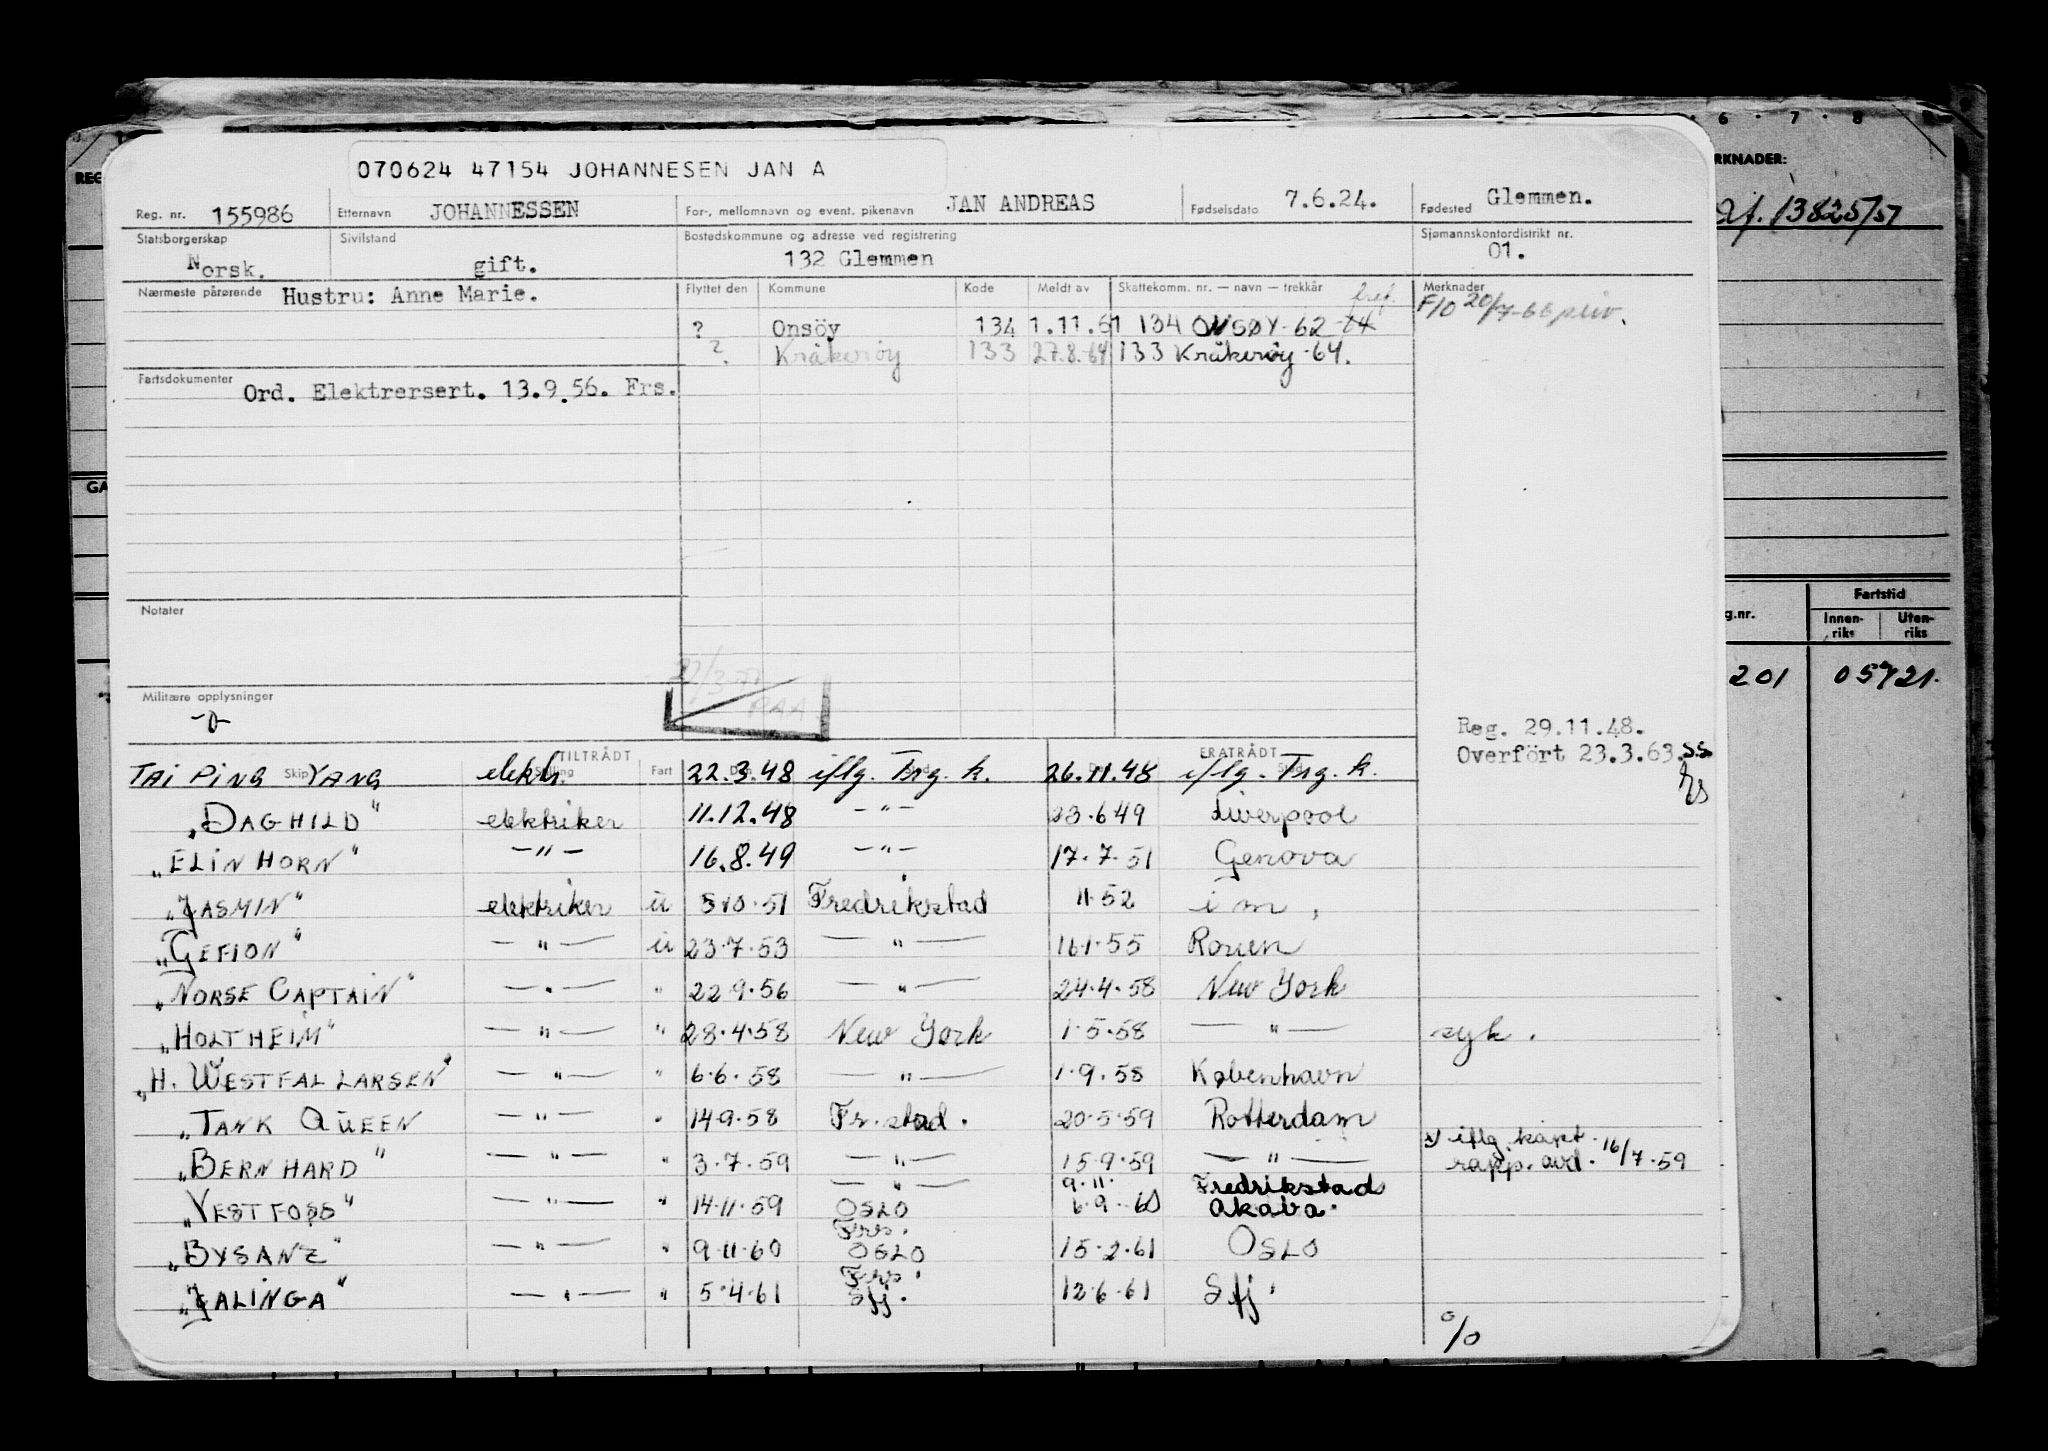 070624 47154 JOHANNESEN JAN A
6 7 8
REG
RKNADER:
Reg. nr. 155986 Etternavn JOHANNESSEN For-, mellomnavn og event. pikenavn JAN ANDREAS Fødselsdato 7.6.24. Fødested Glemmen.
13825/57
Statsborgerskap Norsk. Sivilstand gift. Bostedskommune og adresse ved registrering 132 Glemmen Sjømannskontordistrikt nr. 01.
Nærmeste pårørende Hustru: Anne Marie. Flyttet den Kommune Kode Meldt av Skattekomm. nr. — navn — trekkår Merknader
F/O 20/7-66
? Onsöy 134 1.11.61 134 ONSØY-62-64
?. Kråkerøy 133 27.8.64 133 Kråkerøy-64.
Fartsdokumenter Ord. Elektrersert. 13.9.56. Frs.
GA
Fartstid
g.nr. Innen-riks Uten-riks
Notater
201
Militære opplysninger
Reg. 29.11.48.
Overfört 23.3.63.SS
TILTRÅDT FRATRÅDT
TAI PING Skip YANG elektr. Fart 22.3.48 iflg. Trg. k. 26.11.48 iflg. Trg. k.
"DAGHILD" elektriker 11.12.48 -"- 23.6.49 Liverpool
"ELIN HORN" -"- 16.8.49 -"- 17.7.51 Genova
"JASMIN" elektriker u 5.10.51 Fredrikstad 11.52 i m,
"GEFION" -"- u 23.7.53 -"- 16.1.55 Rouen
"NORSE CAPTAIN" -"- " 22.9.56 -"- 24.4.58 New York
"HOLTHEIM" -"- " 28.4.58 New York 1.5.58 -"- syk.
"H. WESTFAL LARSEN" -"- " 6.6.58 -"- 1.9.58 København
"TANK QUEEN -"- " 14.9.58 Fr.stad. 20.5.59 Rotterdam
x) iflg. kart.
"BERNHARD" -"- " 3.7.59 -"- 15.9.59 -"- rapp. avd. 16/7.59
-"- 9.11. Fredrikstad
"VESTFOSS" -"- " 14.11.59 OSLO 6.9.60 Akaba.
Frs.
"BYSANZ" -"- " 9.11.60 OSLO 15.2.61 OSLO
Frs.
"JALINGA" -"- " 5.4.61 Sfj. 12.6.61 Sfj.
%